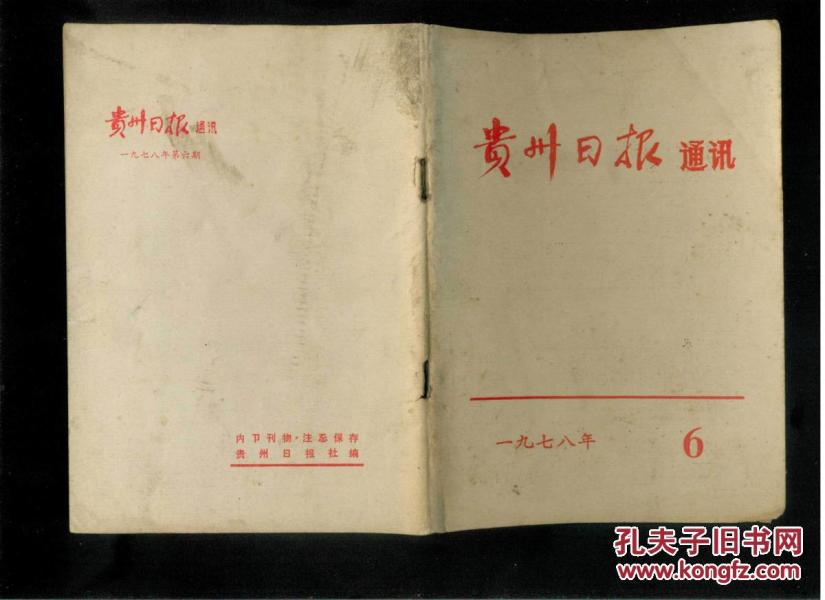 贵州日报 通讯
一九七八年第六期
内卩刊物·注忌保存
贵州日报社编
贵州日报 通讯
一九七八年 6
孔夫子旧书网
www.kongfz.com